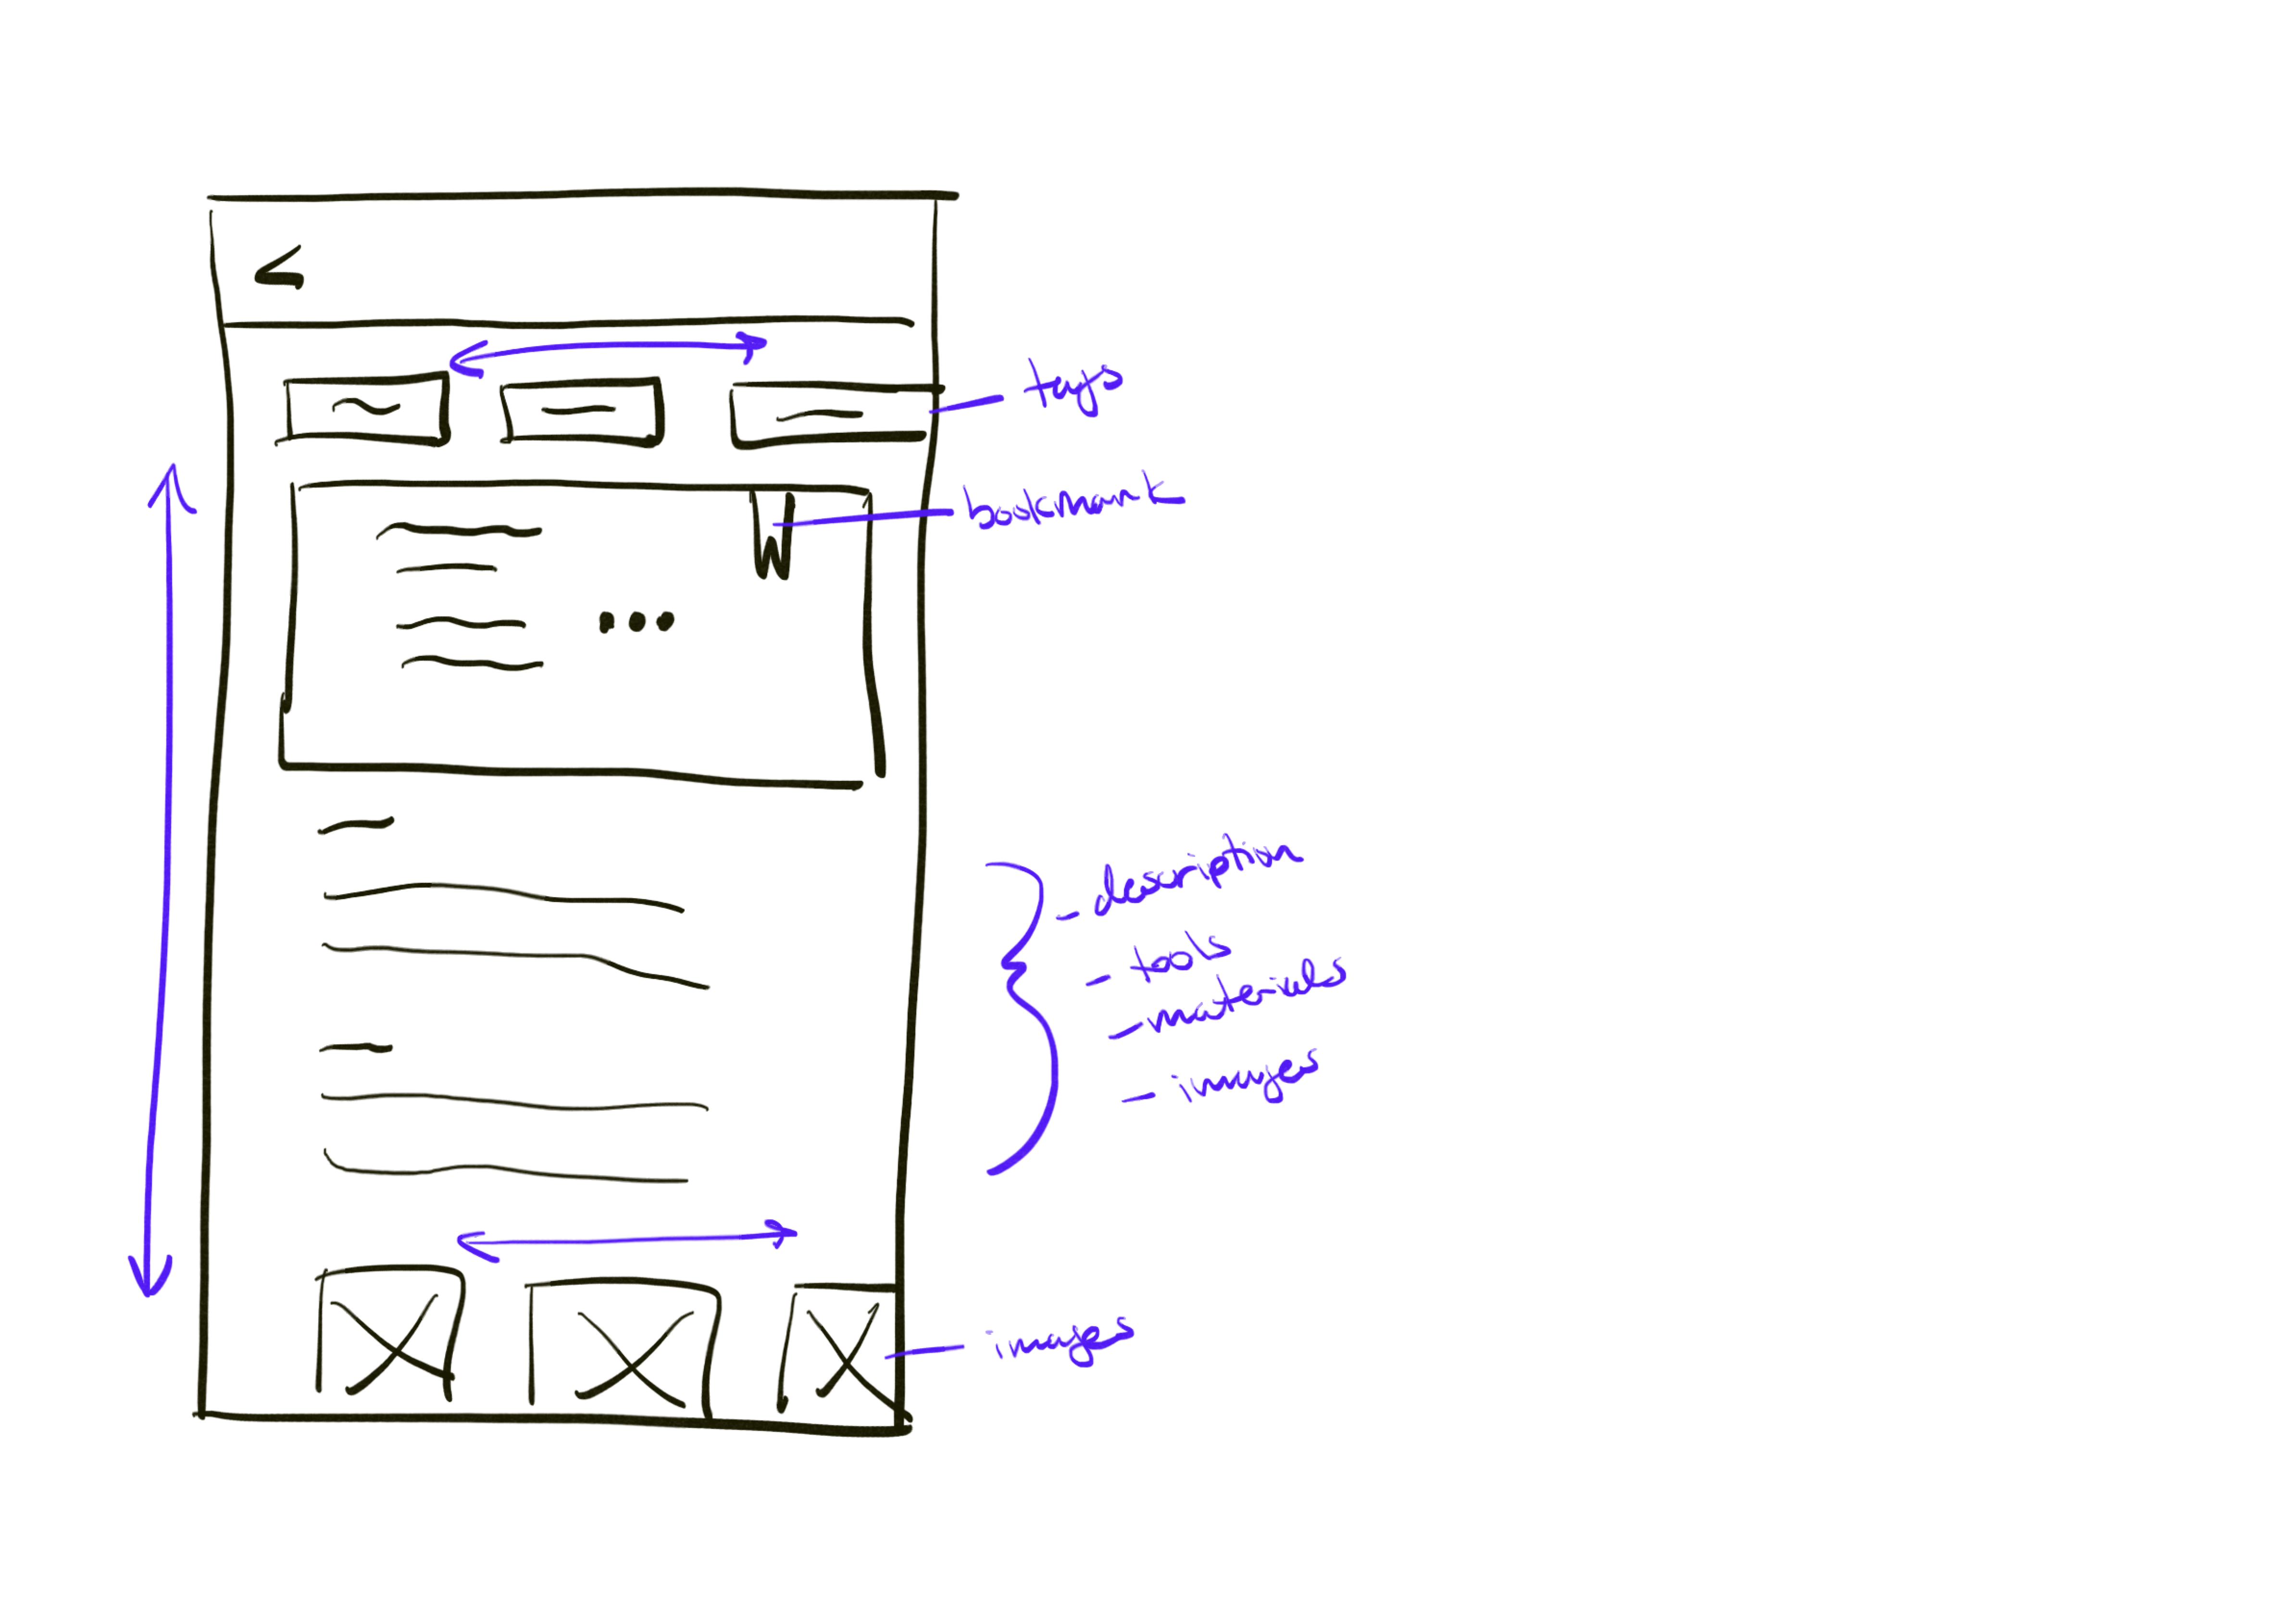 <
tags
bookmark
- description
- tools
- materials
- images
images